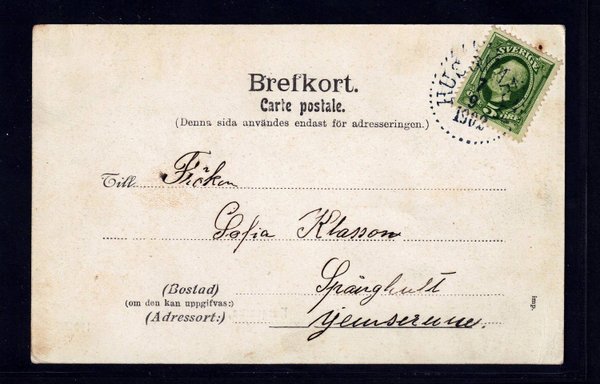 SVERIGE
5 ÖRE
1902
Brefkort.
Carte postale.
(Denna sida användes endast för adresseringen.)
Till Fröken
Sofia Klasson
(Bostad) Spånghult
(om den kan uppgifvas:)
(Adressort:) Gemserum.
Imp.